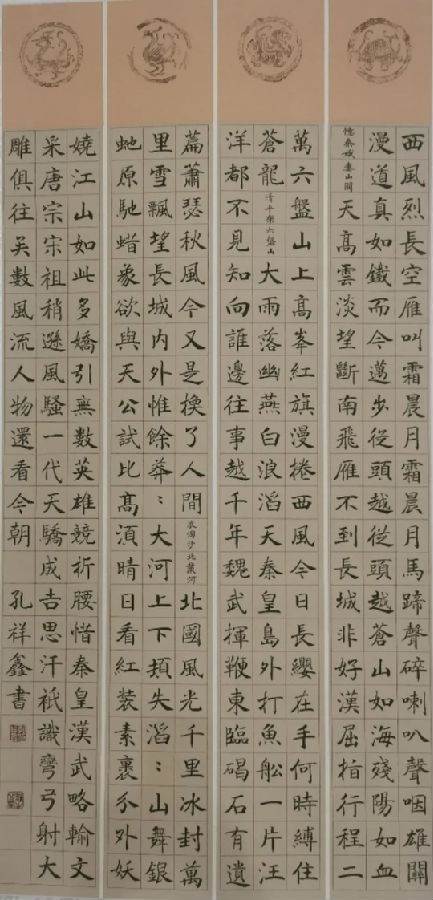 西風烈長空雁叫霜晨月霜晨月馬蹄聲碎喇叭聲咽雄關
漫道真如鐵而今邁步從頭越從頭越蒼山如海殘陽如血
憶秦娥婁山關 天髙雲淡望斷南飛雁不到長城非好漢屈指行程二
萬六盤山上髙峯紅旗漫捲西風今日長纓在手何時縛住
蒼龍 清平樂六盤山 大雨落幽燕白浪滔天秦皇島外打魚舩一片汪
洋都不見知向誰邊往事越千年魏武揮鞭東臨碣石有遺
篇蕭瑟秋風今又是換了人間 浪淘沙北戴河 北國風光千里冰封萬
里雪飄望長城内外惟餘莽〻大河上下頓失滔〻山舞銀
虵原馳蜡象欲與天公試比髙須晴日看紅装素裹分外妖
嬈江山如此多嬌引無數英雄競折腰惜秦皇漢武略輸文
采唐宗宋祖稍遜風騷一代天驕成吉思汗衹識彎弓射大
雕俱往矣數風流人物還看今朝 孔祥鑫書